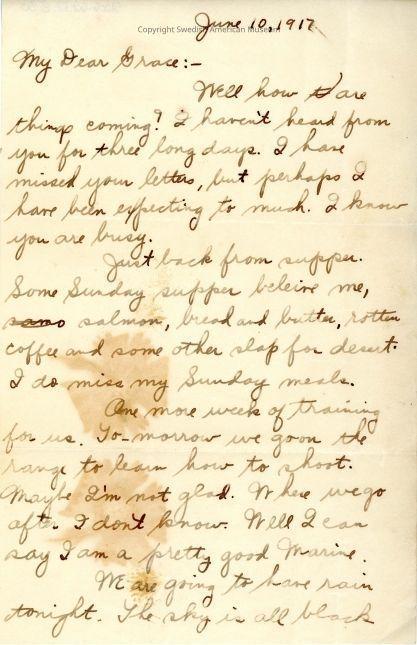 June 10, 1917.
Copyright Swedish American Museum
My Dear Grace:-
Well how are
things coming? I haven't heard from
you for three long days. I have
missed your letters, but perhaps I
have been expecting to much. I know
you are busy.
Just back from supper.
Some Sunday supper beleive me,
salmon, bread and butter, rotten
coffee and some other slop for desert.
I do miss my Sunday meals.
One more week of training
for us. To-morrow we go on the
range to learn how to shoot.
Maybe I'm not glad. Where we go
after I don't know. Well I can
say I am a pretty good Marine.
We are going to have rain
tonight. The sky is all black